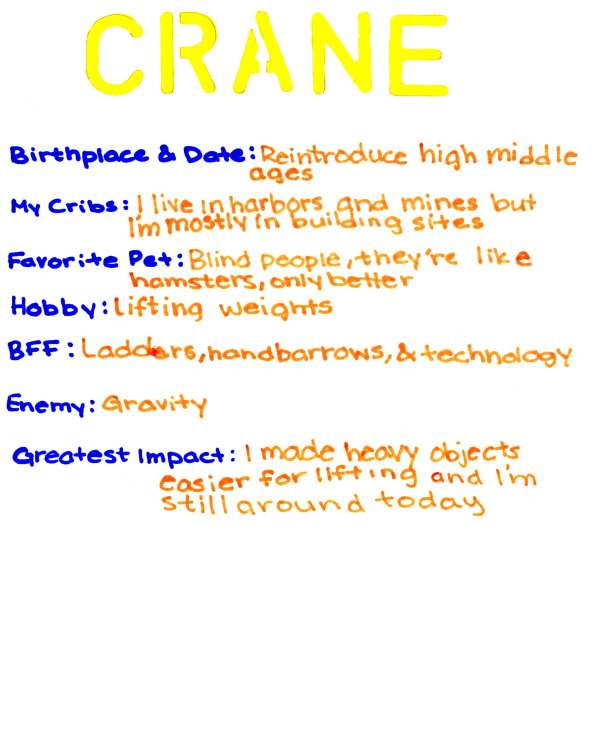 CRANE
Birthplace & Date: Reintroduce high middle
ages
My Cribs: I live in harbors and mines but
I'm mostly in building sites
Favorite Pet: Blind people, they're like
hamsters, only better
Hobby: Lifting weights
BFF: Ladders, handbarrows, & technology
Enemy: Gravity
Greatest Impact: I made heavy objects
easier for lifting and I'm
still around today